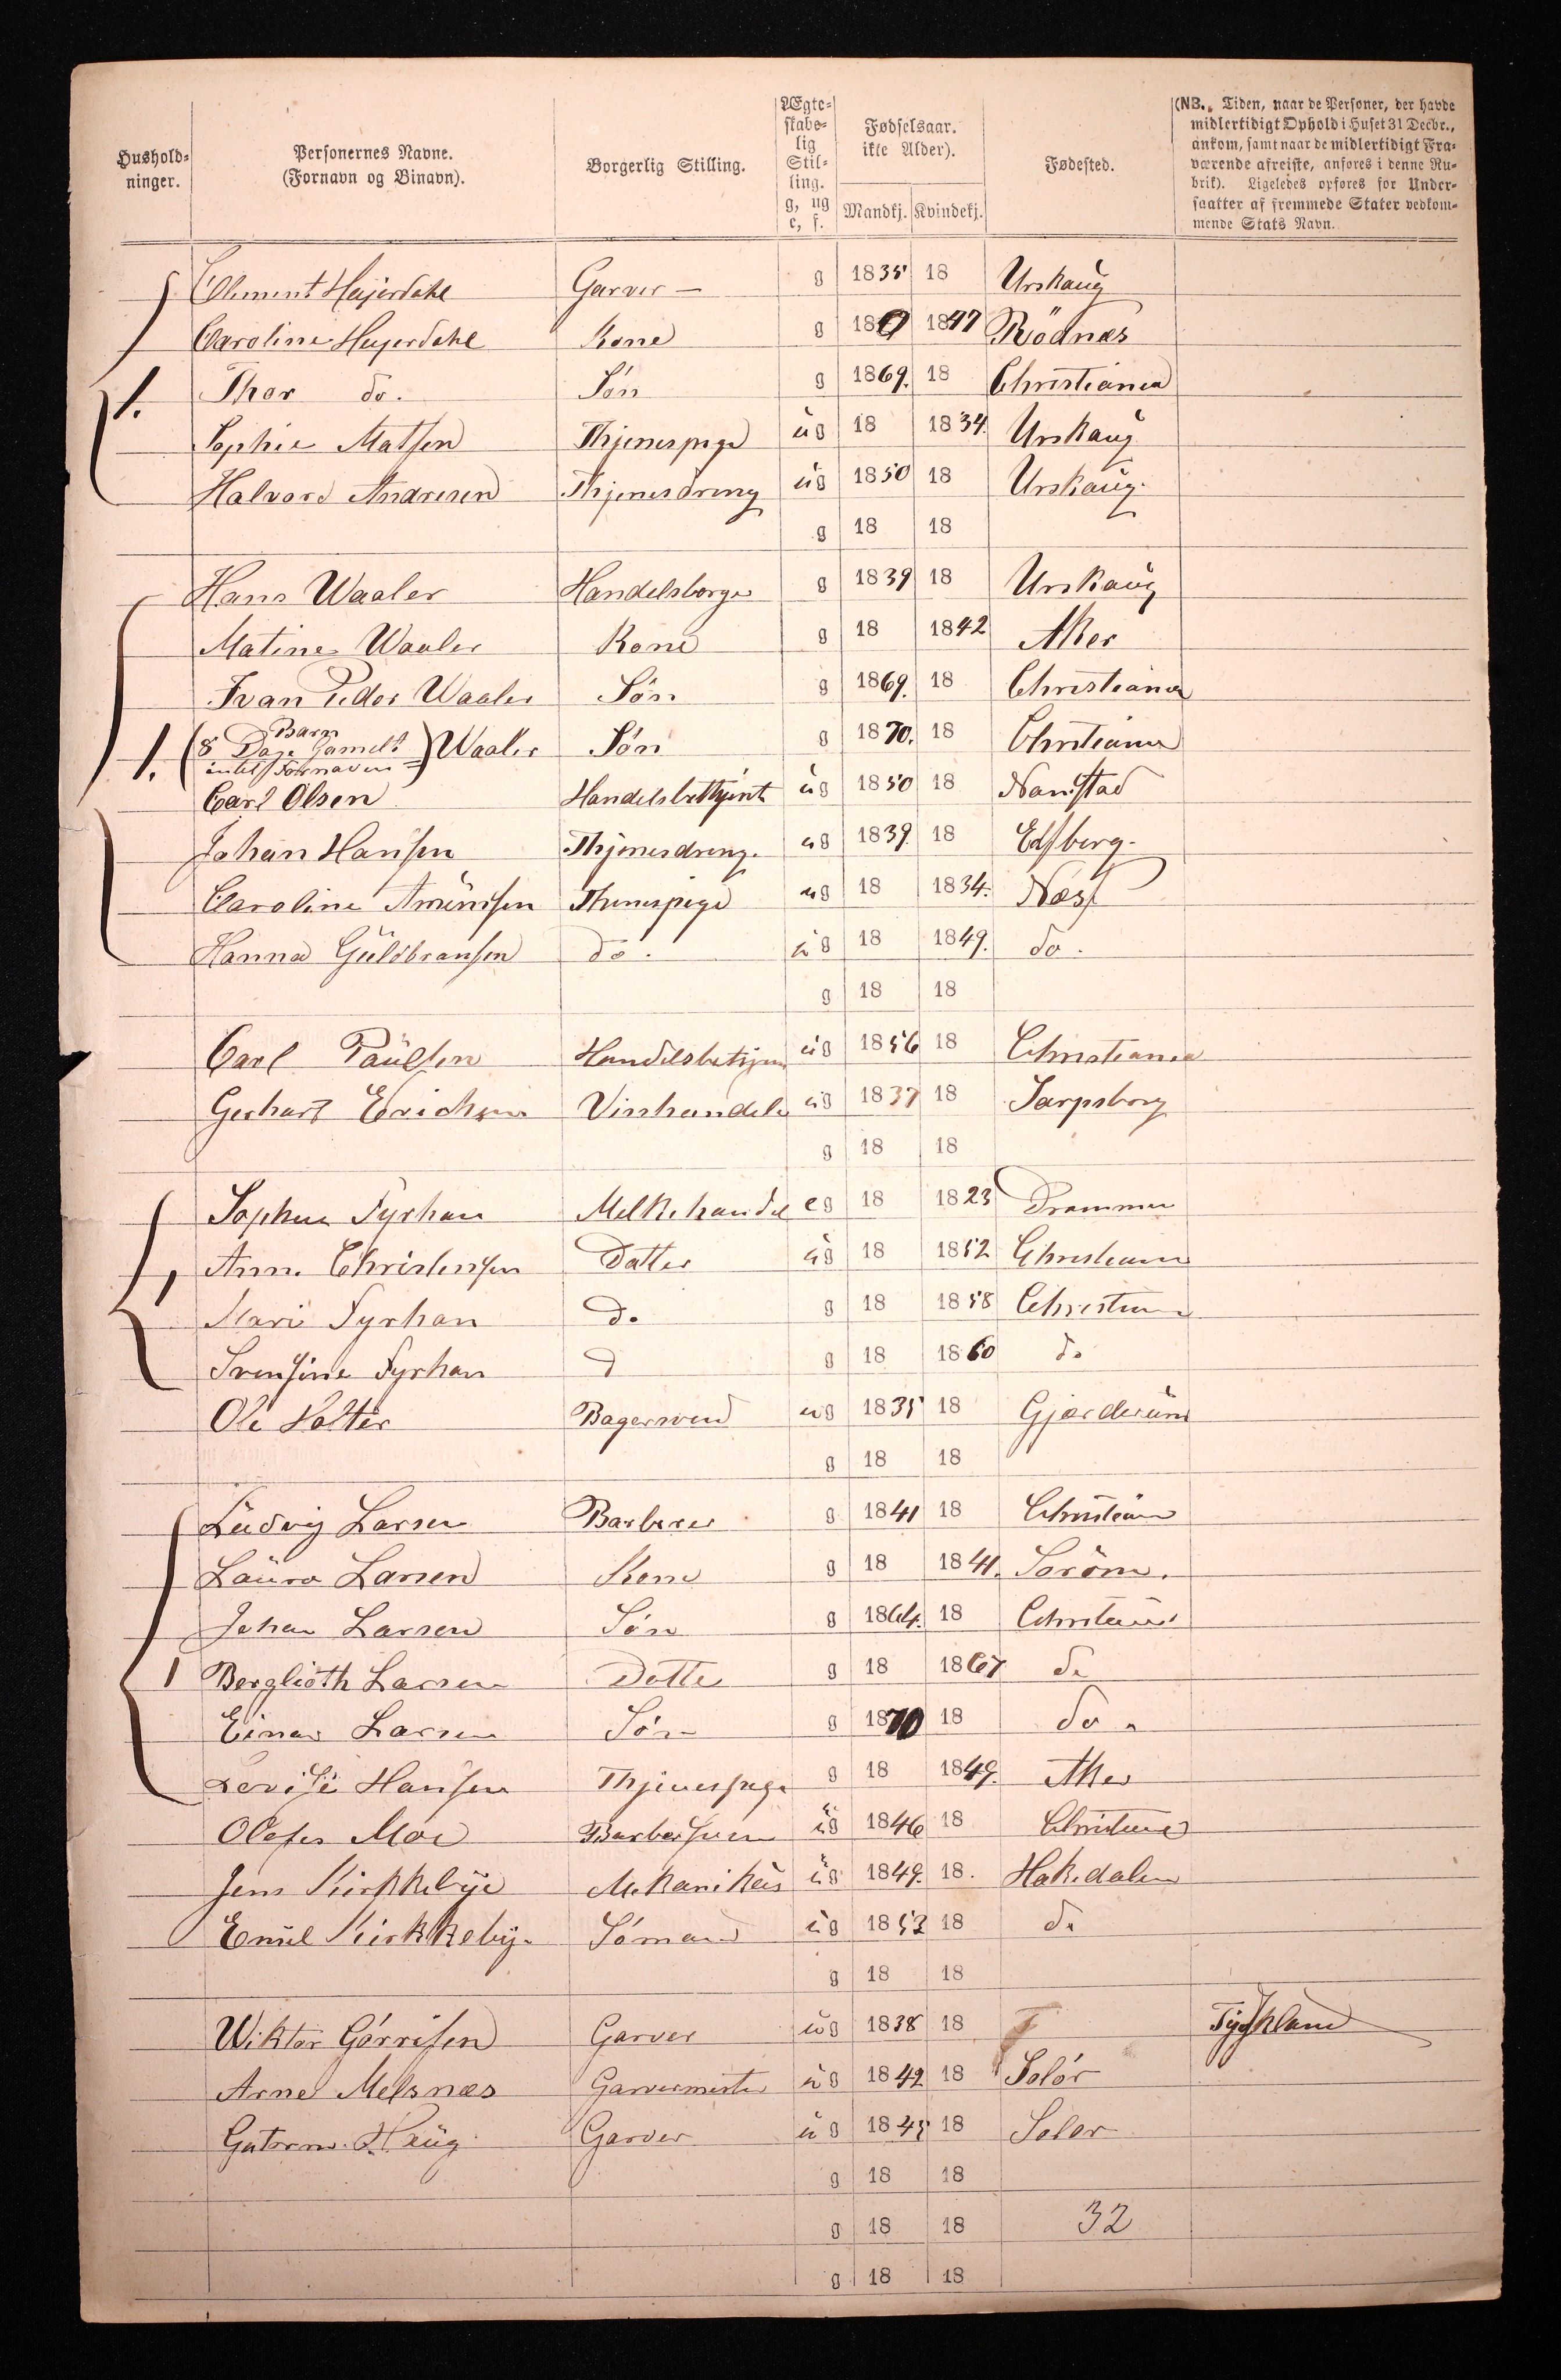 Hushold-
ninger.
Personernes Navne.
(Fornavn og Binavn).
Borgerlig Stilling.
Ægte-
skabe-
lig
Stil-
ling.
g, ug
e, f.
Fødselsaar.
ikke Alder).
Mandkj. Kvindekj.
Fødested.
(NB. Tiden, naar de Personer, der havde
midlertidigt Ophold i Huset 31 Decbr.,
ankom, samt naar de midlertidigt Fra-
værende afreiste, anføres i denne Ru-
brik). Ligeledes opføres for Under-
saatter af fremmede Stater vedkom-
mende Stats Navn.
Clement Heyerdahl Garver — g 1835 18 Urskaug
Caroline Heyerdahl Kone g 18 1847 Rödnæs
1. Thor do. Søn g 1869. 18 Christiania
Sophie Matsen Thjenespige ug 18 1834. Urskaug
Halvord Andresen Thjenesdreng ug 1850 18 Urskaug.
g 18 18
Hans Waaler Handelsborger g 1839 18 Urskaug
Matine Waaler Kone g 18 1842 Aker
Ivan Peder Waaler Søn g 1869. 18 Christiania
1. (8 Dage Gamelt Barn intet Fornavn) Waaler Søn g 1870. 18 Christiania
Carl Olsen Handelsbettjent ug 1850 18 Nanstad
Johan Hansen Thjenesdreng. ug 1839. 18 Edsberg.
Caroline Amundsen Thenespige ug 18 1834. Næss
Hanna Guldbransen do. ug 18 1849. do.
g 18 18
Carl Paulsen Handelsbetjen ug 1856 18 Christiania
Gerhart Erichsen Vinhandler ug 1837 18 Sarpsborg
g 18 18
Sophie Fyrhan Melkehandel eg 18 1823 Drammen
1 Anne Christensen Datter ug 18 1852 Christiania
Mari Fyrhan do g 18 1858 Christiania
Svensine Fyrhan d g 18 1860 do
Ole Holter Bagersvend ug 1835 18 Gjerderum
g 18 18
Ludvig Larsen Barberer g 1841 18 Christiania
Laura Larsen Kone g 18 1841. Soröm.
Johan Larsen Søn g 1864. 18 Christiania
1 Berglioth Larsen Datter g 18 1867 do
Einar Larsen Søn g 1870 18 do
Lovise Hansen Thjenespige g 18 1849. Aker
Olefes Moe Barbersven ug 1846 18 Christiania
Jens Kirkkebye Mekanikus ug 1849. 18. Hakedalen
Emil Kirkkeby. Sómand ug 1853 18 do
g 18 18
Wiktor Górrisen Garver ug 1838 18 Tyskland
Arne Melsnæs Garvermester ug 1842 18 Solór
Gutorm Haug Garver ug 1845 18 Solor
g 18 18
g 18 18 32
g 18 18